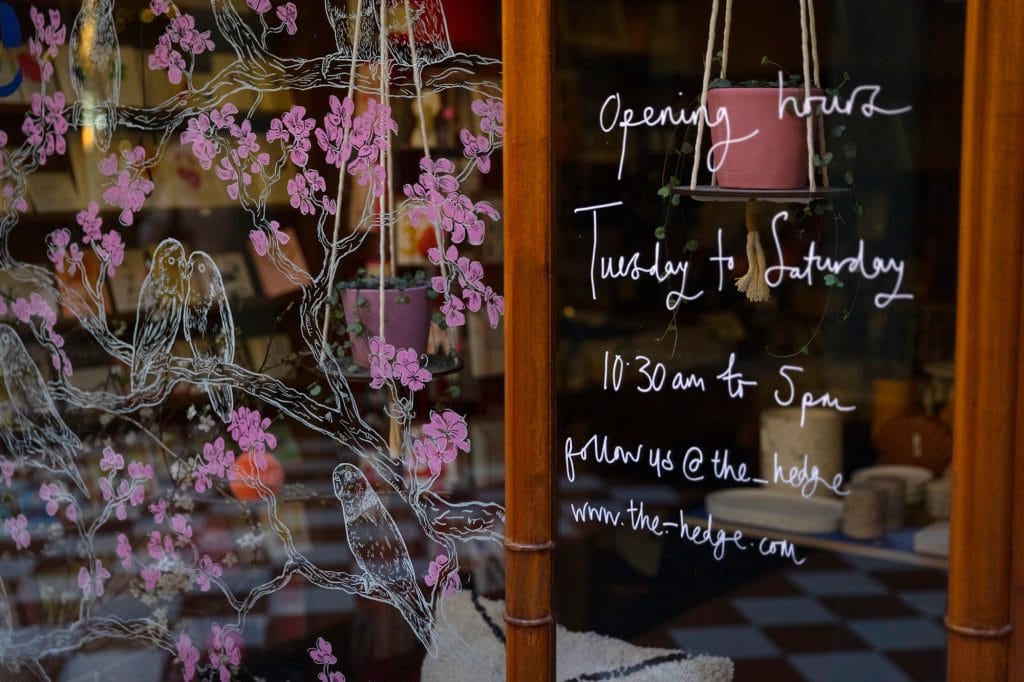 Opening hours
Tuesday to Saturday
10:30am to 5pm
follow us @the_hedge
www.the-hedge.com